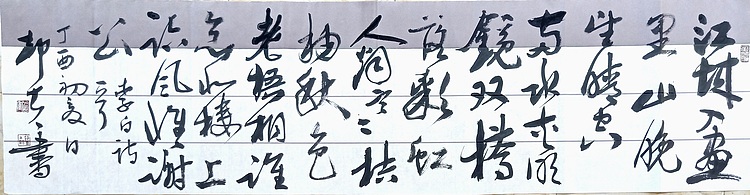 江城入画
里山晚
望晴空
两水夹明
鏡双橋
落彩虹
人烟寒桔
柚秋色
老梧桐谁
念北楼上
临风怀谢
公
李白诗
一首
丁酉初夏日
書